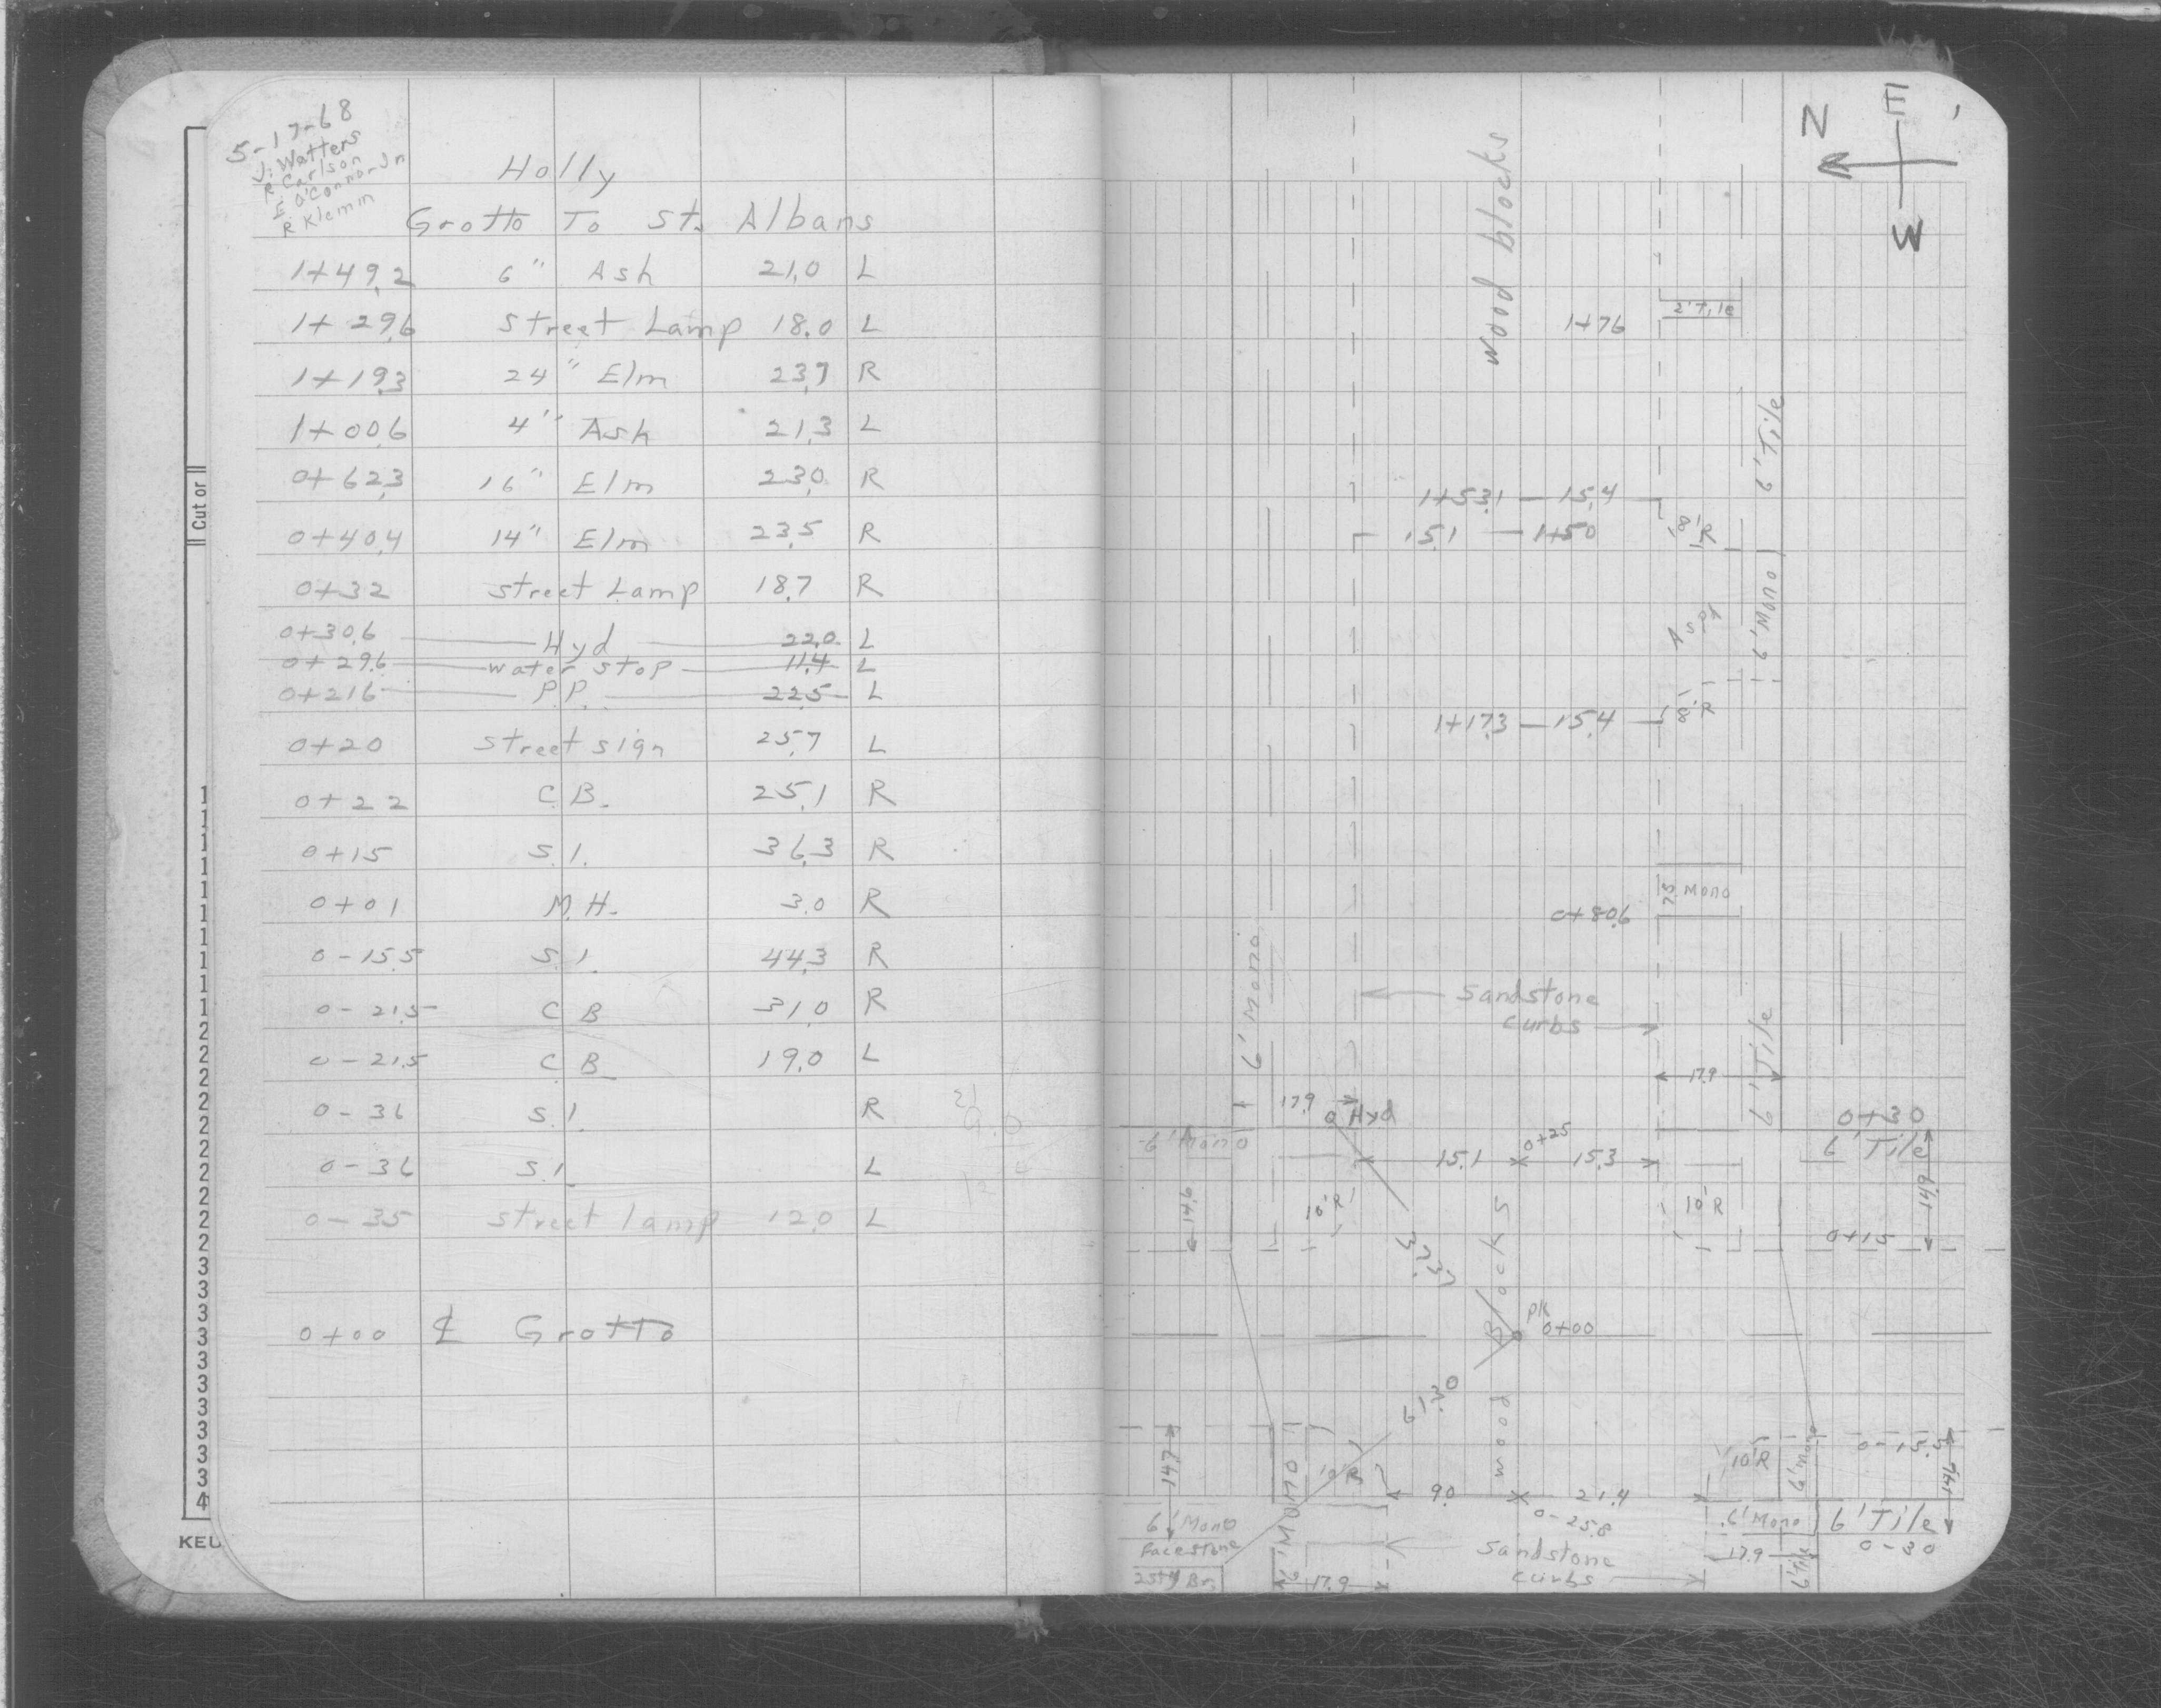 5-17-68
J. Watters
R Carlson
E. O'Connor Jr
R Klemm
Holly
Grotto To St. Albans
1+49.2 6" Ash 21.0 L
1+29.6 Street Lamp 18.0 L
1+19.3 24" Elm 23.9 R
1+00.6 4" Ash 21.3 L
0+62.3 16" Elm 23.0 R
0+40.4 14" Elm 23.5 R
0+32 Street Lamp 18.7 R
0+30.6 Hyd 22.0 L
0+29.6 water stop 11.4 L
0+21.6 P.P. 22.5 L
0+20 Street sign 25.7 L
0+22 C.B. 25.1 R
0+15 S.I. 36.3 R
0+01 M.H. 3.0 R
0-15.5 S.I. 44.3 R
0-21.5 C B 31.0 R
0-21.5 C B 19.0 L
0-36 S.I. R
0-36 S.I. L
0-35 Street lamp 12.0 L
0+00 ℄ Grotto
Cut or
1
1
1
1
1
1
1
1
1
1
2
2
2
2
2
2
2
2
2
2
3
3
3
3
3
3
3
3
3
3
4
KEU
N
E
W
wood blocks
1+76
2' Tile
6' Tile
1+53.1 — 15.4
15.1 — 1+50
8'R
Asph
6' Mono
1+17.3 — 15.4
8'R
7.5 Mono
0+80.6
6' Mono
Sandstone
curbs
17.9
6' Tile
17.9
Hyd
0+30
6' Mono
0+25
15.1
15.3
6' Tile
14.6
10'R
10'R
14.9
0+15
33.37
wood Blocks
pk
0+00
61.30
14.7
6' Mono
10'R
10'R
6' Mono
0-15.5
14.6
9.0
21.4
0-25.8
6' Mono
Face stone
2 sty Br.
Sandstone
curbs
6' Mono
6' Tile
0-30
17.9
17.9
6' Tile